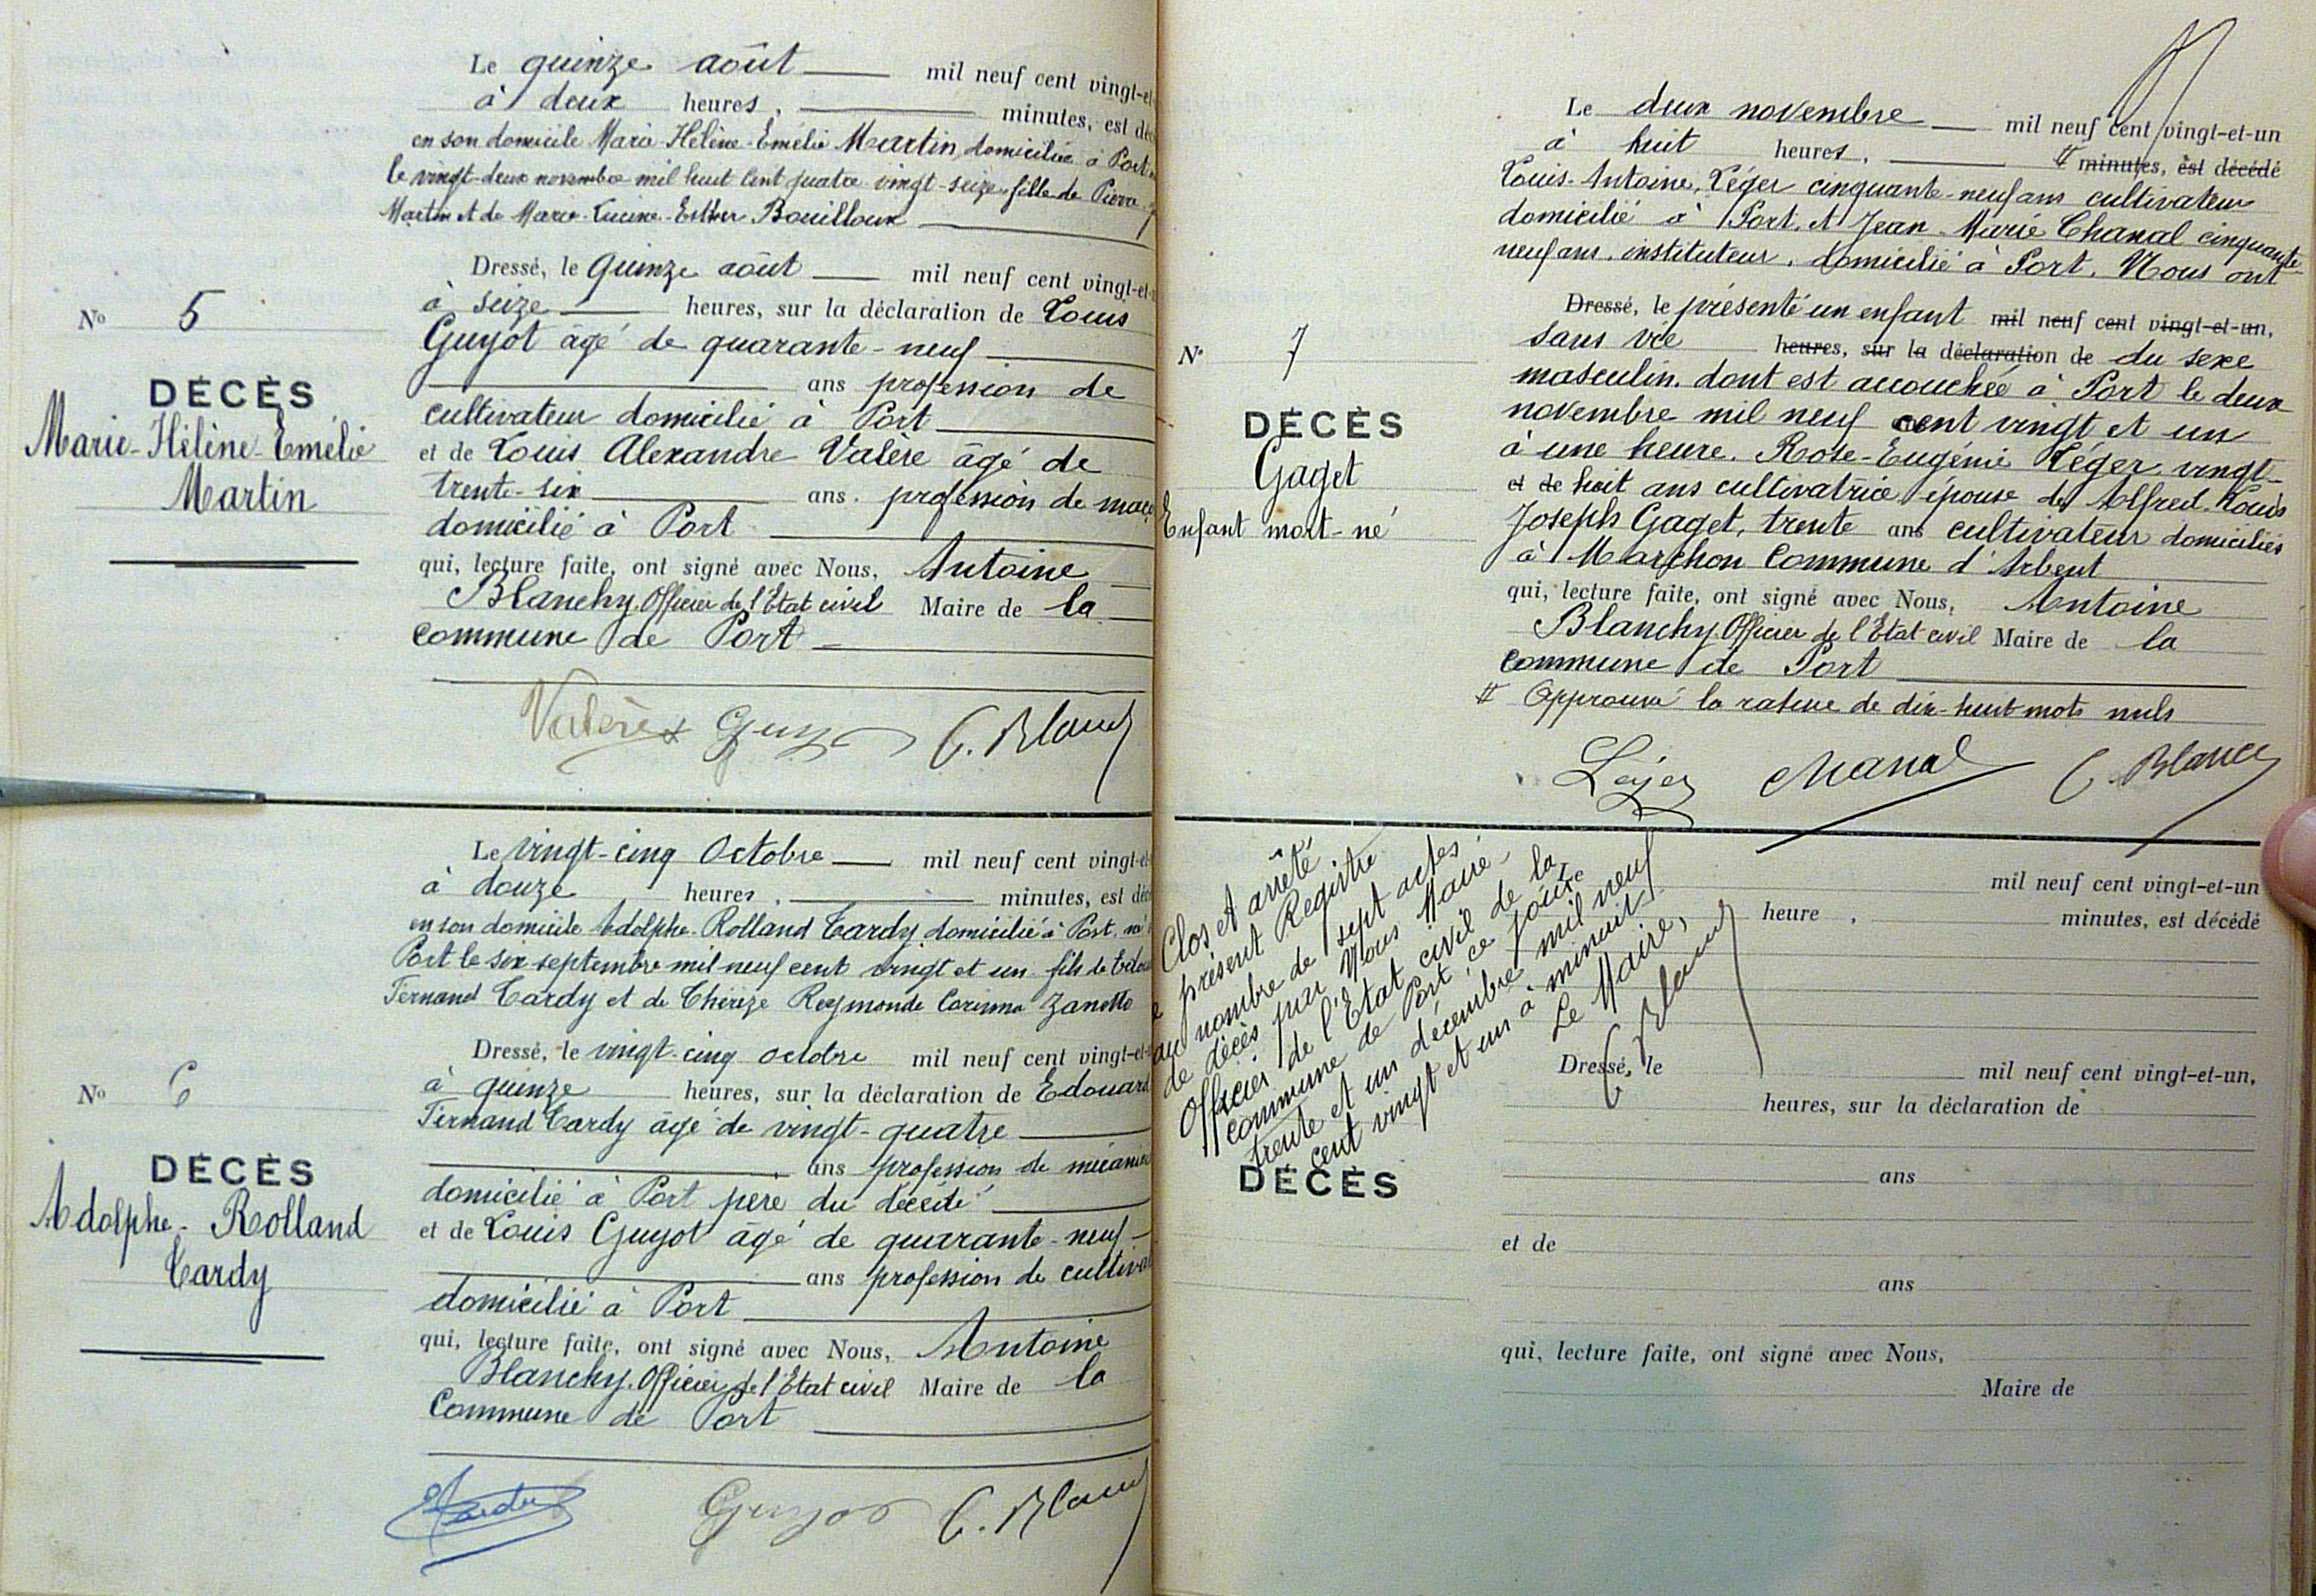 Le quinze août mil neuf cent vingt-et
à deux heures, minutes, est déc
en son domicile Marie-Hélène-Emélie Martin, domiciliée à Port
le vingt-deux novembre mil huit cent quatre-vingt-seize, fille de Pierre
Martin et de Marie-Lucine-Esther Bouilloux
Dressé, le quinze août mil neuf cent vingt-et
à seize heures, sur la déclaration de Louis
Guyot âgé de quarante-neuf
ans profession de
cultivateur domicilié à Port
et de Louis Alexandre Valère âgé de
trente-six ans. profession de maç
domicilié à Port
qui, lecture faite, ont signé avec Nous, Antoine
Blanchy. Officier de l'Etat civil Maire de la
commune de Port
No 5
DÉCÈS
Marie-Hélène-Emélie
Martin
Valère Guyot Blanc
Le vingt-cinq Octobre mil neuf cent vingt-et
à douze heures, minutes, est déc
en son domicile Adolphe-Rolland Tardy, domicilié à Port, né
Port le six septembre mil neuf cent vingt et un fils de
Fernand Tardy et de Thérèze Reymonde Corinna Zanetto
Dressé, le vingt-cinq octobre mil neuf cent vingt-et
à quinze heures, sur la déclaration de Edouard
Fernand Tardy âgé de vingt-quatre
ans profession de mécanici
domicilié à Port père du décédé
et de Louis Guyot âgé de quarante-neuf
ans profession de cultiva
domicilié à Port
qui, lecture faite, ont signé avec Nous, Antoine
Blanchy. Officier de l'Etat civil Maire de la
Commune de Port
No 6
DÉCÈS
Adolphe-Rolland
Tardy
Tardy Guyot Blanc
Le deux novembre mil neuf cent vingt-et-un
à huit heures, # minutes, est décédé
Louis-Antoine, Léger cinquante-neuf ans cultivateur
domicilié à Port, et Jean-Marie Chanal cinquante
neuf ans, instituteur, domicilié à Port, Nous ont
Dressé, le présenté un enfant mil neuf cent vingt-et-un,
sans vie heures, sur la déclaration de du sexe
masculin. dont est accouchée à Port le deux
novembre mil neuf cent vingt et un
à une heure. Rose-Eugénie Léger, vingt-
et de huit ans cultivatrice épouse de Alfred-Louis
Joseph Gaget, trente ans cultivateur domiciliés
à Marchon Commune d'Arbent
qui, lecture faite, ont signé avec Nous, Antoine
Blanchy. Officier de l'Etat civil Maire de la
commune de Port
# Approuvé la rature de dix-huit mots nuls
No 7
DÉCÈS
Gaget
Enfant mort-né
Léger Chanal Blanc
Clos et arrêté
le présent Registre
au nombre de sept actes
de décès par Nous Maire
Officier de l'Etat civil de la
commune de Port ce jour
trente et un décembre mil neuf
cent vingt et un à minuit
Le Maire,
Blanc
Le mil neuf cent vingt-et-un
heure, minutes, est décédé
Dressé, le mil neuf cent vingt-et-un,
heures, sur la déclaration de
DÉCÈS
ans
et de
ans
qui, lecture faite, ont signé avec Nous,
Maire de